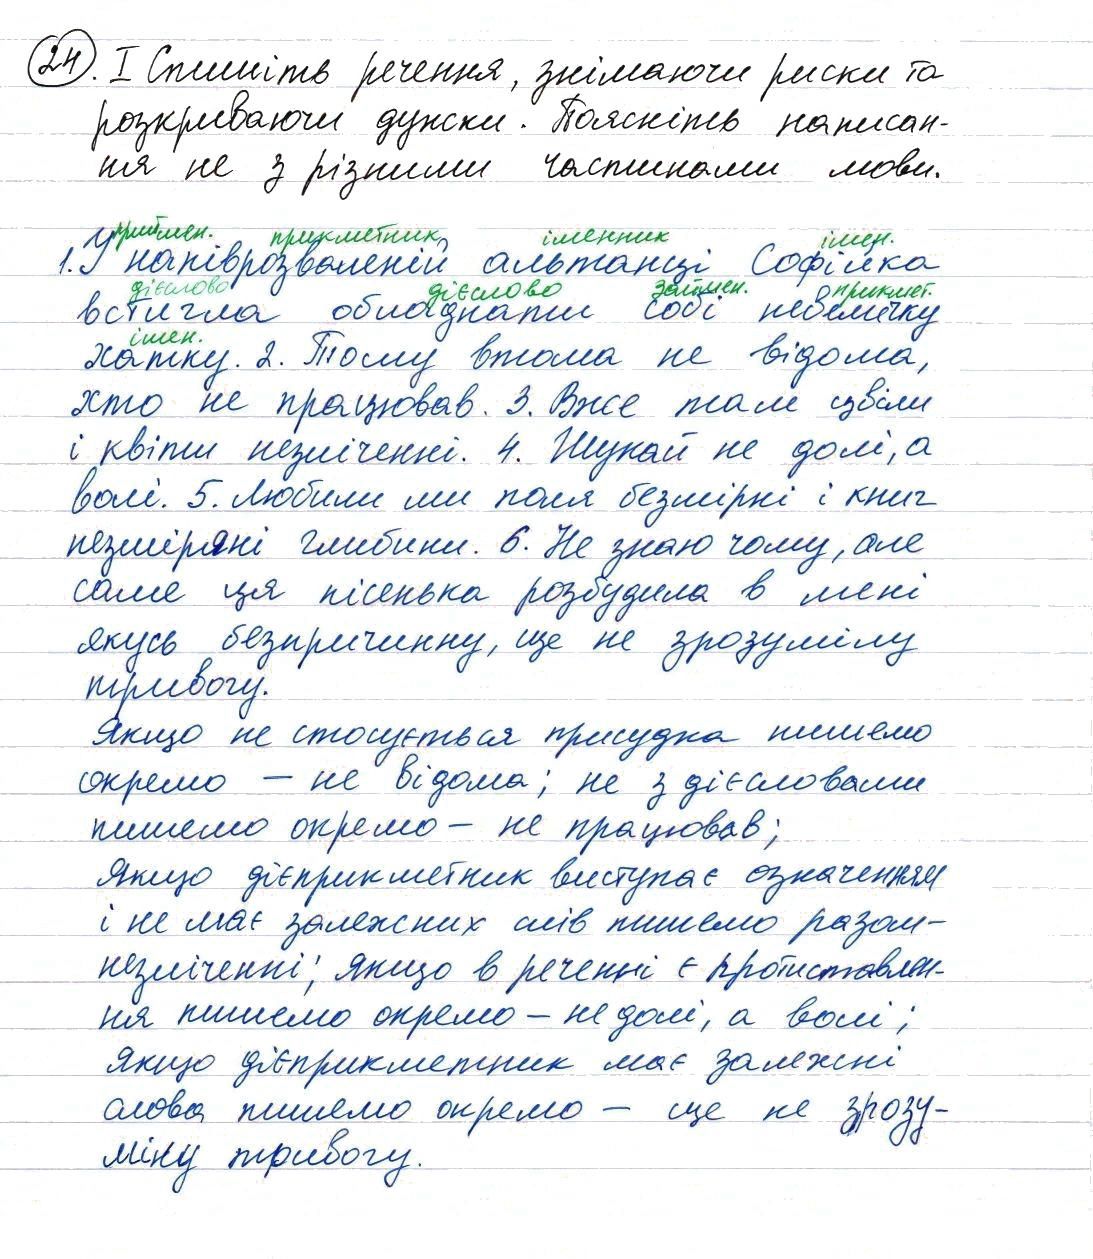 24. І Спишіть речення, знімаючи риски та
розкриваючи дужки. Поясніть написан-
ня не з різними частинами мови.
приймен. прикметник іменник імен.
1. У напіврозваленій альтанці Софійка
дієслово дієслово займен. прикмет.
встигла обладнати собі невеличку
імен.
хатку. 2. Тому втома не відома,
хто не працював. 3. Вже там цвіли
і квіти незліченні. 4. Шукай не долі, а
волі. 5. Любили ми поля безмірні і книг
незміряні глибини. 6. Не знаю чому, але
саме ця пісенька розбудила в мені
якусь безпричинну, ще не зрозумілу
тривогу.
Якщо не стосується присудка пишемо
окремо – не відома; не з дієсловами
пишемо окремо – не працював;
Якщо дієприкметник виступає означенням
і не має залежних слів пишемо разом –
незліченні; якщо в реченні є протиставлен-
ня пишемо окремо – не долі, а волі;
Якщо дієприкметник має залежні
слова пишемо окремо – ще не зрозу-
мілу тривогу.